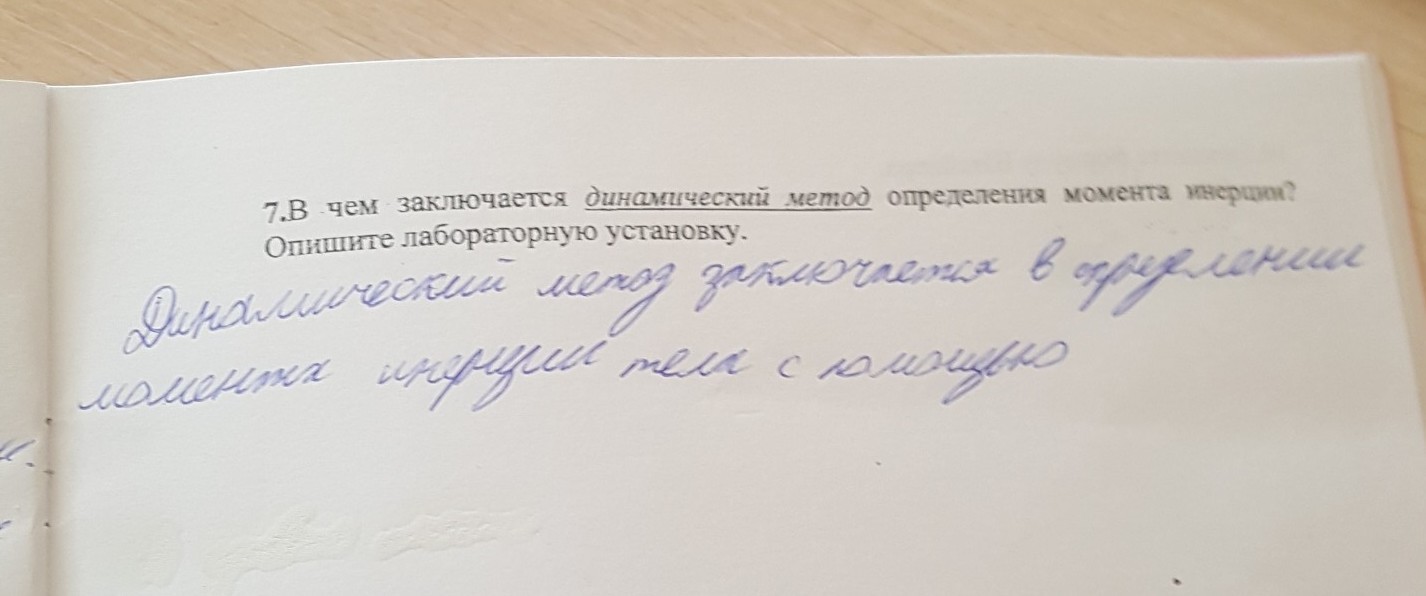 7.В чем заключается динамический метод определения момента инерции?
Опишите лабораторную установку.
Динамический метод заключается в определении
момента инерции тела с помощью